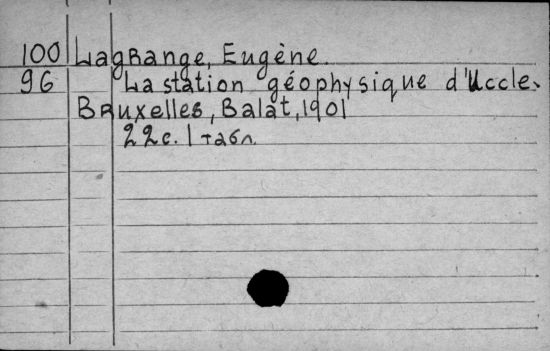 100 Lagrange, Eugène.
96 La station géophysique d'Uccle.
Bruxelles, Balat, 1901
22с. 1 табл.